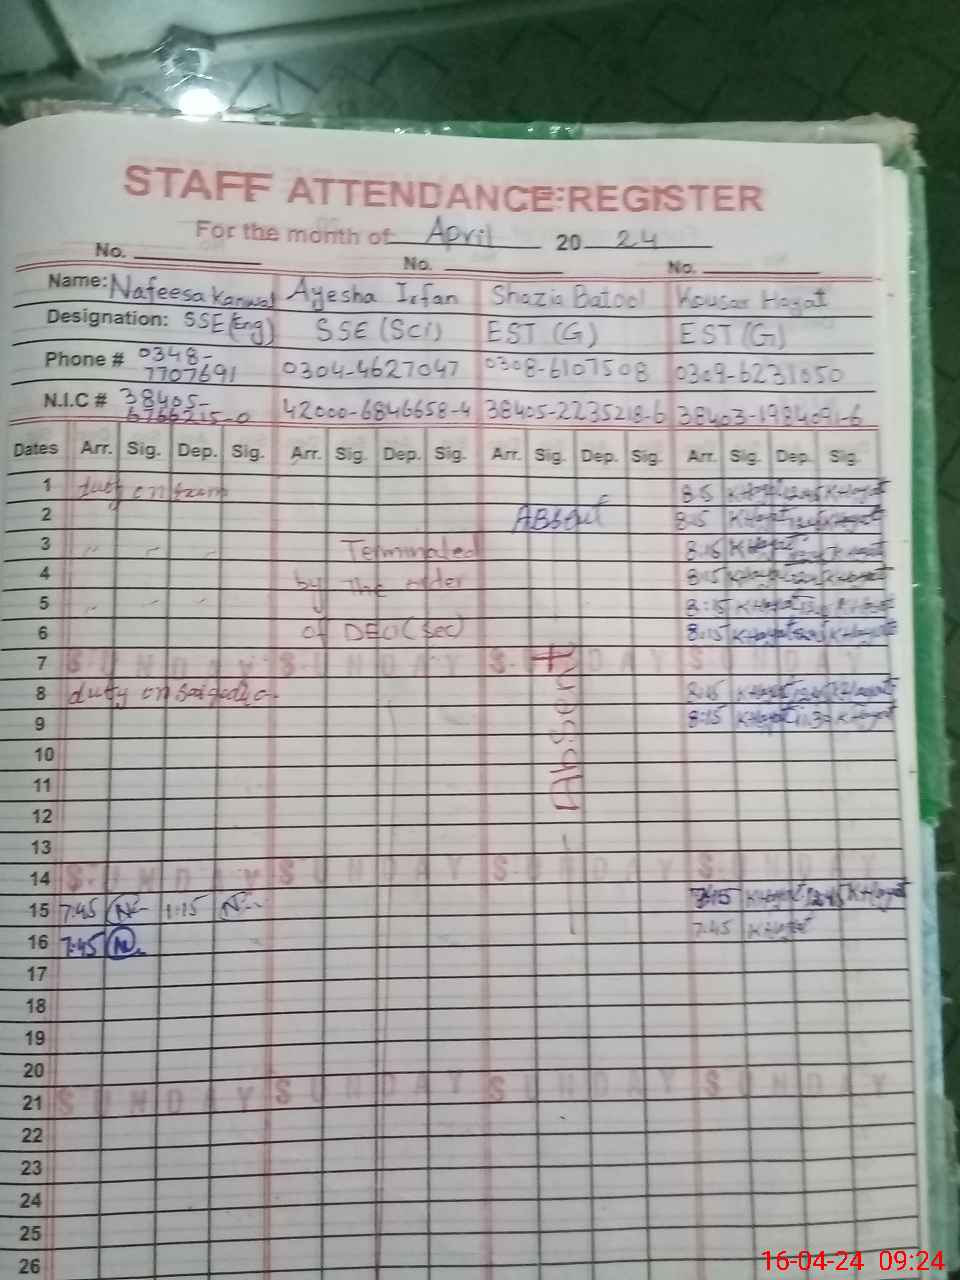 STAFF ATTENDANCE REGISTER
For the month of April 2024
No. No. No.
Name: Nafeesa Kanwal Ayesha Irfan Shazia Batool Kousar Hayat
Designation: SSE (Eng) SSE (Sci) EST (G) EST (G)
Phone # 0348-7707691 0304-4627047 0308-6107508 0309-6231050
N.I.C # 38405-6766215-0 42000-6846658-4 38405-2235218-6 38403-1984091-6
Dates Arr. Sig. Dep. Sig. Arr. Sig. Dep. Sig. Arr. Sig. Dep. Sig. Arr. Sig. Dep. Sig.
1 duty on 8:15 KHayat 12:45 KHayat
2 Absent 8:15 KHayat KHayat
3 〃 〃 〃 Terminated 8:15 KHayat KHayat
4 by the order 8:15 KHayat KHayat
5 〃 〃 〃 8:15 KHayat KHayat
6 of DEO (Sec) 8:15 KHayat KHayat
7 SUNDAY SUNDAY SUNDAY SUNDAY
8 duty on 8:15 KHayat 12:45 KHayat
9 8:15 KHayat 11:30 KHayat
Absent
10
11
12
13
14 SUNDAY SUNDAY SUNDAY SUNDAY
15 7:45 N 1:15 N KHayat 12:45 KHayat
16 7:45 N 7:45 KHayat
17
18
19
20
21 SUNDAY SUNDAY SUNDAY SUNDAY
22
23
24
25
26
16-04-24 09:24